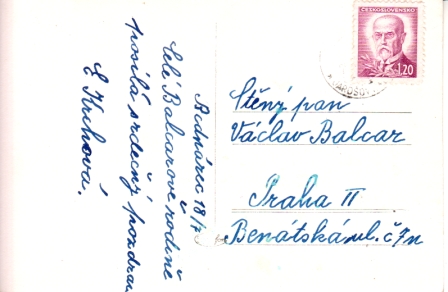 Bednárec 18/7
Celé Balcarově rodině
posílá srdečný pozdrav
E Kuhová.
ČESKOSLOVENSKO
1.20
JAROŠOV
Ctěný pan
Václav Balcar
Praha II
Benátská ul. č 7n